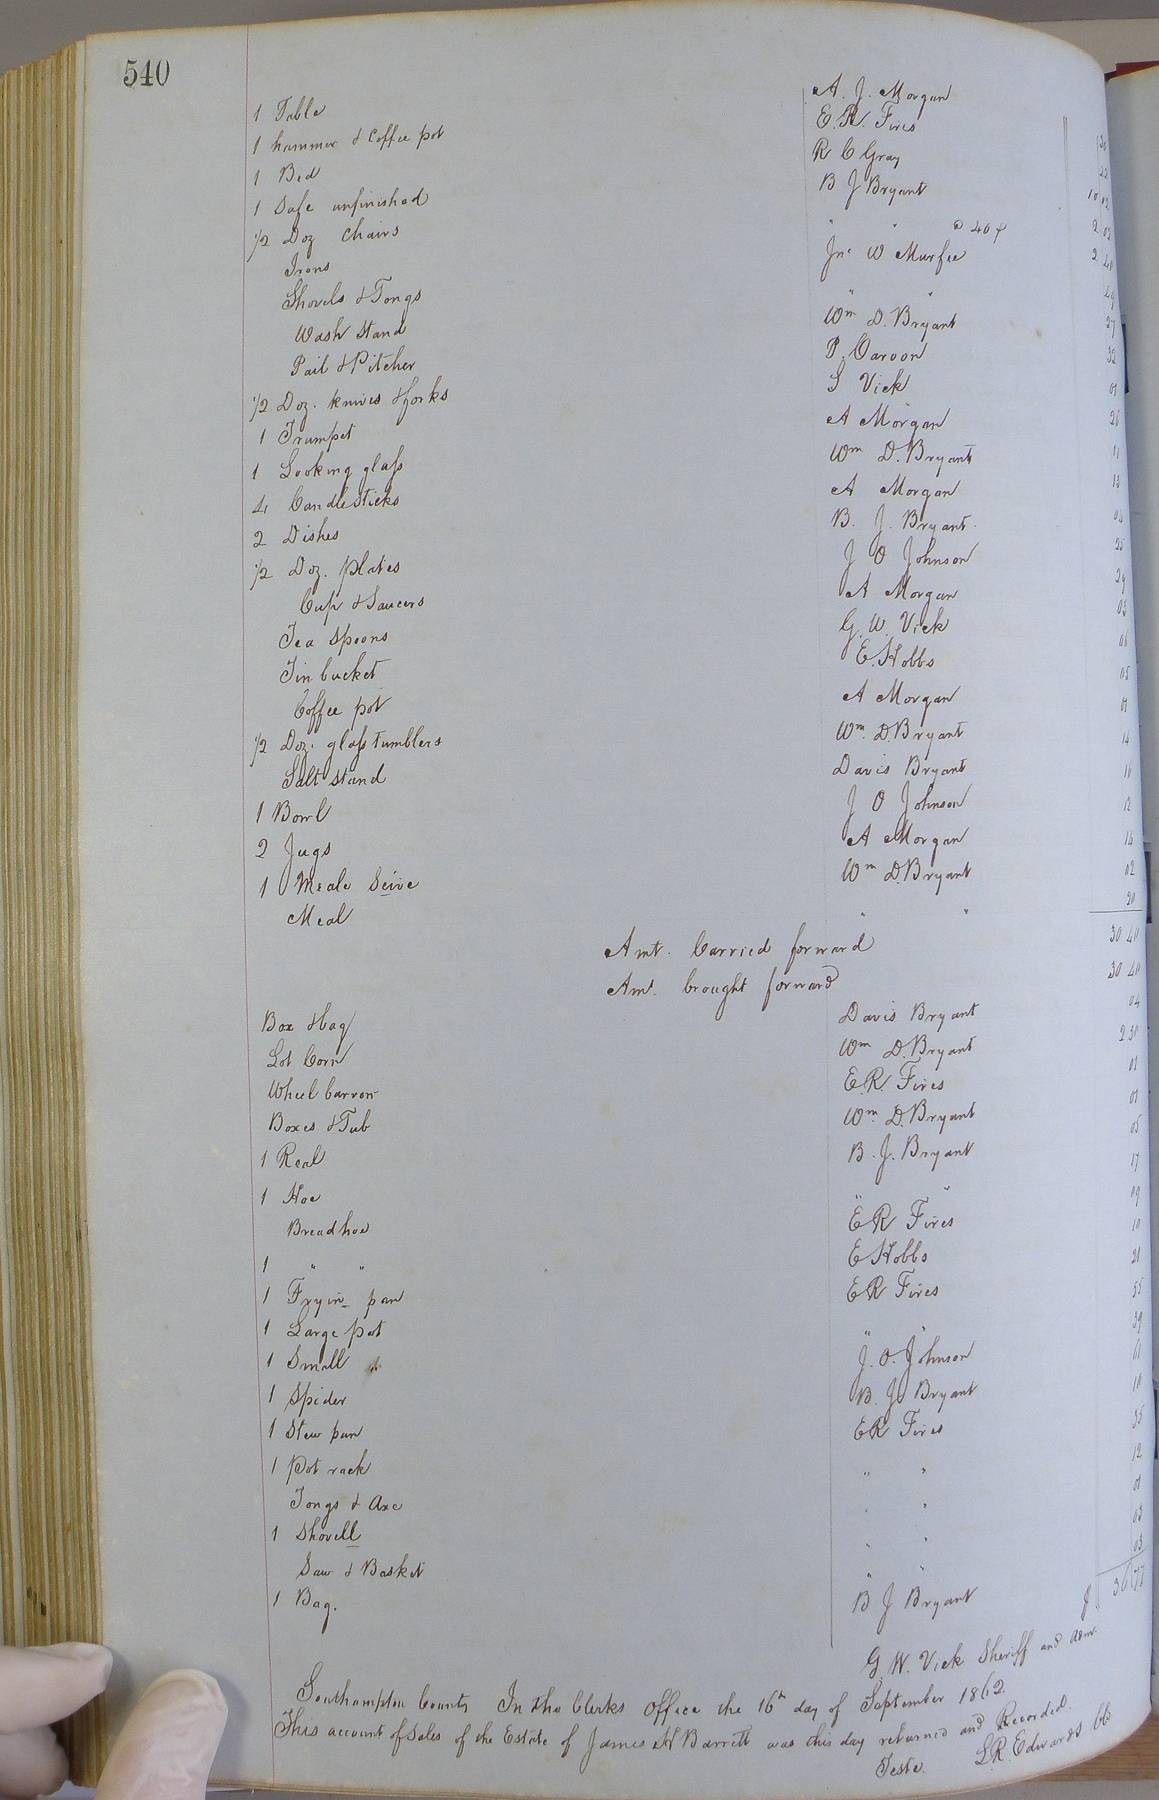 540
1 Table A. J. Morgan
1 hammer & Coffee pot E. R. Fires
1 Bed R C Gray
1 Safe unfinished B J Bryant 10 02
1/2 Doz Chairs " " @ 40¢ 2
Irons Jnº W Murfee 2 40
Shovels & Tongs " " 49
Wash Stand Wm D. Bryant 27
Pail & Pitcher P. Caroon 32
1/2 Doz. knives & forks S Vick 01
1 Trumpet A Morgan 26
1 Looking glass Wm D. Bryant 11
4 Candlesticks A Morgan 13
2 Dishes B. J. Bryant 04
1/2 Doz. plates J O Johnson 25
Cup & Saucers A Morgan 29
Tea Spoons G. W. Vick 03
Tin bucket E. Hobbs 06
Coffee pot A Morgan 05
1/2 Doz. glass tumblers Wm D. Bryant 01
Salt Stand Davis Bryant 14
1 Bowl J O Johnson 10
2 Jugs A Morgan 12
1 Meale Seive Wm D. Bryant 14
Meal " " 02
20
Amt. Carried forward 30 40
Amt. brought forward 30 40
Box & bag Davis Bryant 04
Lot Corn Wm D. Bryant 2 50
Wheel barrow E. R. Fires 01
Boxes & Tub Wm D. Bryant 01
1 Real B. J. Bryant 05
1 Hoe " " 17
Bread hoe E R Fires 09
1 " " E Hobbs 10
1 Fryin pan E R Fires 21
1 Large pot " " 55
1 Small d J. O. Johnson 39
1 Spider B. J. Bryant 61
1 Stew pan E R Fires 10
1 Pot rack " " 35
Tongs & Axe " " 12
1 Shovell " " 01
Saw & Basket " " 03
1 Bag. B J Bryant 03
$ 36 77
G. W. Vick Sheriff and Admr.
Southampton County In the Clerks Office the 16th day of September 1862.
This account of Sales of the Estate of James H Barrett was this day returned and Recorded.
Teste. L. R. Edwards Clk